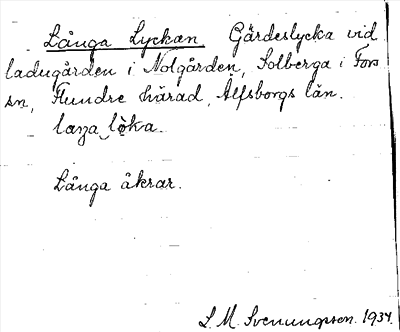 Långa Lyckan. Gärdeslycka vid
ladugården i Nolgården, Solberga i Fors
sn, Flundre härad, Älfsborgs län.
laŋa lờka.
Långa åkrar.
L. M. Svenungsson. 1934.